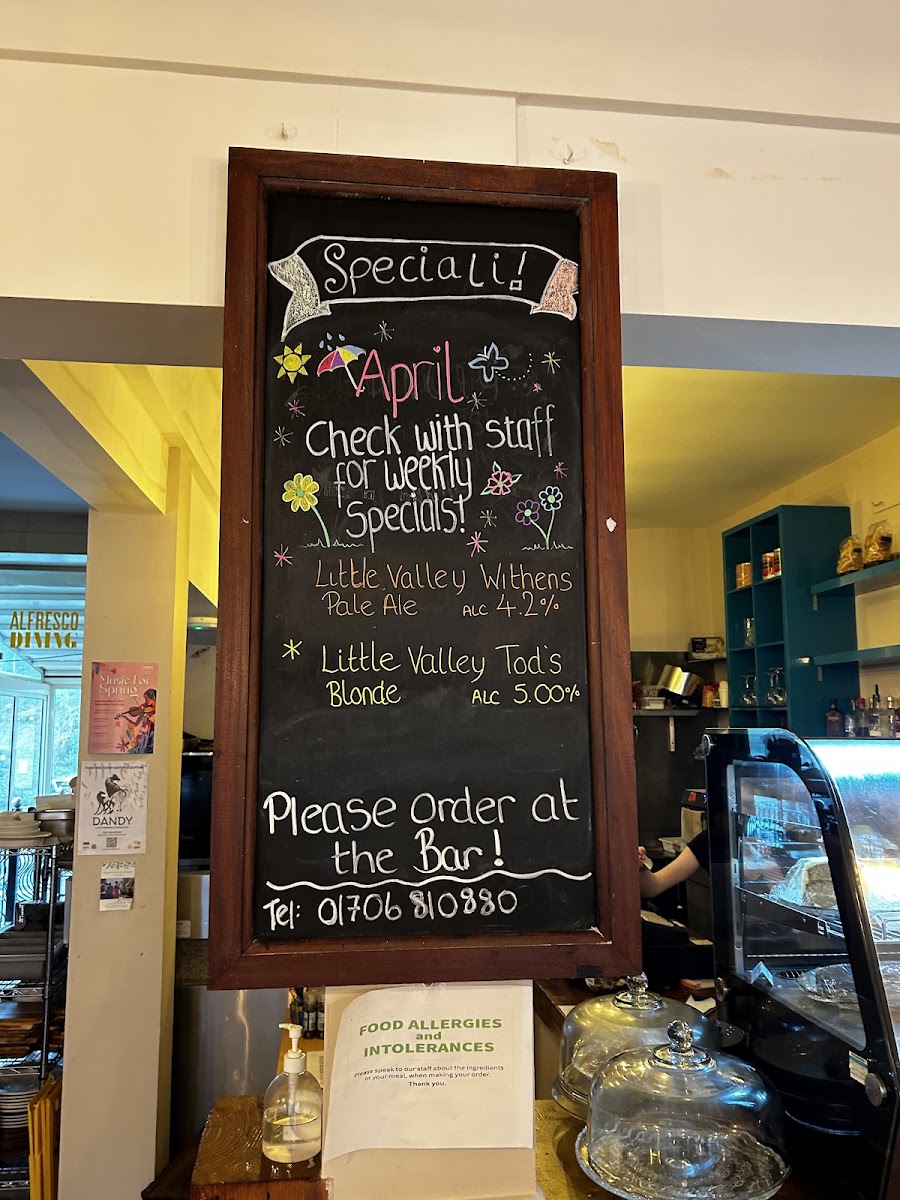 Speciali!
April
Check with staff
for weekly
specials!
Little Valley Withens
Pale Ale ALC 4.2%
Little Valley Tod's
Blonde ALC 5.00%
Please order at
the Bar!
Tel: 01706 810880
ALFRESCO
DINING
Music For
Spring
DANDY
FOOD ALLERGIES
and
INTOLERANCES
Please speak to our staff about the ingredients
in your meal, when making your order.
Thank you.